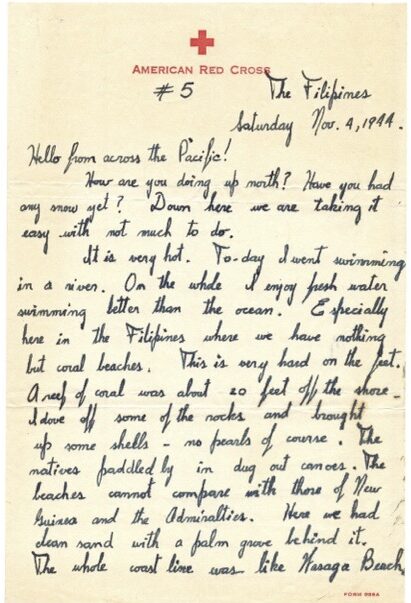 AMERICAN RED CROSS
#5 The Filipines
Saturday Nov. 4, 1944.
Hello from across the Pacific!
How are you doing up north? Have you had
any snow yet? Down here we are taking it
easy with not much to do.
It is very hot. To-day I went swimming
in a river. On the whole I enjoy fresh water
swimming better than the ocean. Especially
here in the Filipines where we have nothing
but coral beaches. This is very hard on the feet.
A reef of coral was about 20 feet off the shore.
I dove off some of the rocks and brought
up some shells - no pearls of course. The
natives paddled by in dug out canoes. The
beaches cannot compare with those of New
Guinea and the Admiralties. Here we had
clean sand with a palm grove behind it.
The whole coast line was like Wasaga Beach.
FORM 539A